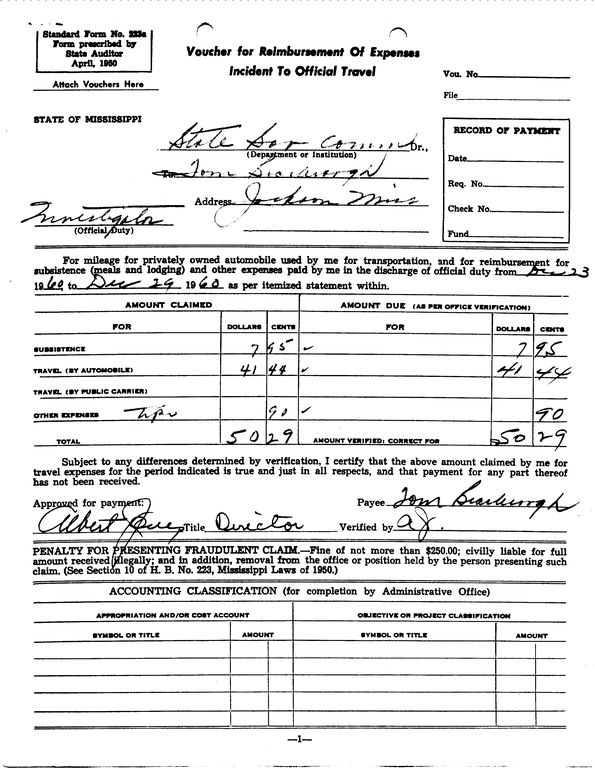 Standard Form No. 223a
Form prescribed by
State Auditor
April, 1950
Attach Vouchers Here
Voucher for Reimbursement Of Expenses
Incident To Official Travel
Vou. No.
File
STATE OF MISSISSIPPI
State Sov Comm Dr.,
(Department or Institution)
To Tom Scarbrough
Address Jackson Miss
Investigator
(Official Duty)
RECORD OF PAYMENT
Date
Req. No.
Check No.
Fund
For mileage for privately owned automobile used by me for transportation, and for reimbursement for
subsistence (meals and lodging) and other expenses paid by me in the discharge of official duty from Dec 23
1960 to Dec 29 1960 as per itemized statement within.
AMOUNT CLAIMED AMOUNT DUE (AS PER OFFICE VERIFICATION)
FOR DOLLARS CENTS FOR DOLLARS CENTS
SUBSISTENCE 7 95 ✓ 7 95
TRAVEL (BY AUTOMOBILE) 41 44 ✓ 41 44
TRAVEL (BY PUBLIC CARRIER)
OTHER EXPENSES tips 90 ✓ 90
TOTAL 50 29 AMOUNT VERIFIED: CORRECT FOR 50 29
Subject to any differences determined by verification, I certify that the above amount claimed by me for
travel expenses for the period indicated is true and just in all respects, and that payment for any part thereof
has not been received.
Approved for payment: Payee Tom Scarbrough
Albert Title Director Verified by a.J.
PENALTY FOR PRESENTING FRAUDULENT CLAIM.—Fine of not more than $250.00; civilly liable for full
amount received illegally; and in addition, removal from the office or position held by the person presenting such
claim. (See Section 10 of H. B. No. 223, Mississippi Laws of 1950.)
ACCOUNTING CLASSIFICATION (for completion by Administrative Office)
APPROPRIATION AND/OR COST ACCOUNT OBJECTIVE OR PROJECT CLASSIFICATION
SYMBOL OR TITLE AMOUNT SYMBOL OR TITLE AMOUNT
—1—